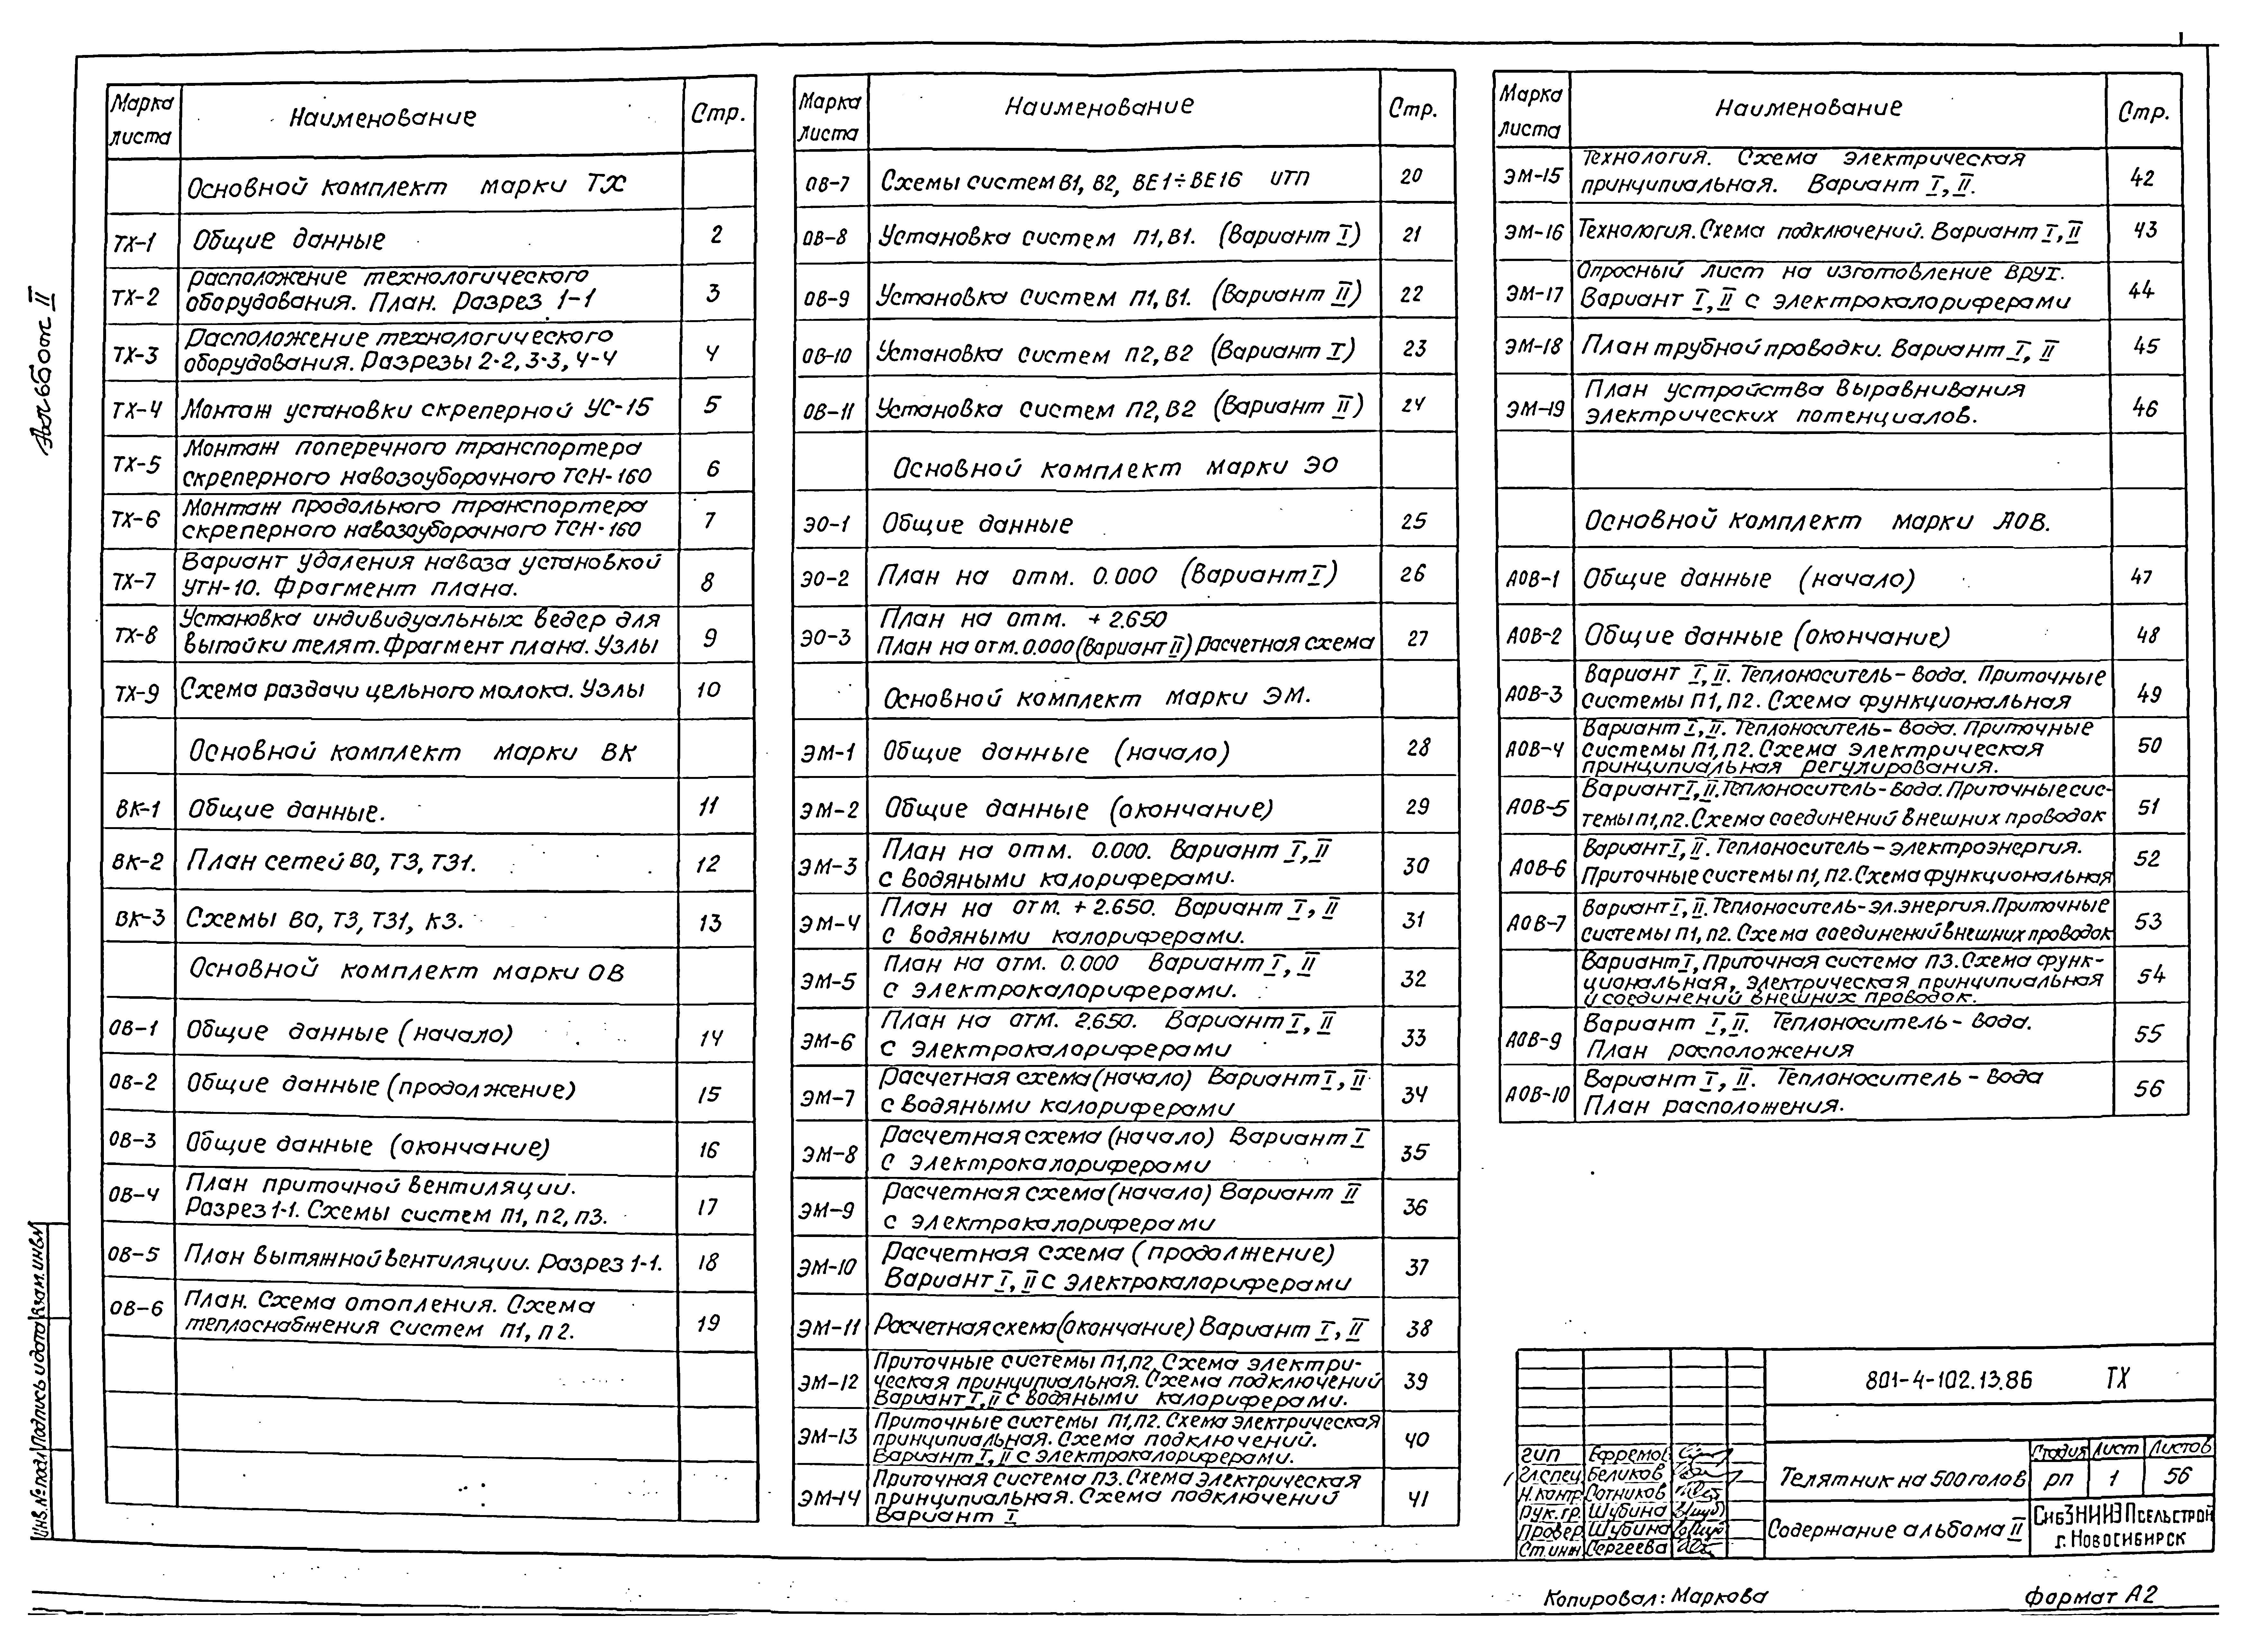 Альбом II
Марка листа Наименование Стр.
Основной комплект марки ТХ
ТХ-1 Общие данные 2
ТХ-2 Расположение технологического
оборудования. План. Разрез 1-1 3
ТХ-3 Расположение технологического
оборудования. Разрезы 2-2, 3-3, 4-4 4
ТХ-4 Монтаж установки скреперной УС-15 5
ТХ-5 Монтаж поперечного транспортера
скреперного навозоуборочного ТСН-160 6
ТХ-6 Монтаж продольного транспортера
скреперного навозоуборочного ТСН-160 7
ТХ-7 Вариант удаления навоза установкой
УТН-10. Фрагмент плана. 8
ТХ-8 Установка индивидуальных ведер для
выпойки телят. Фрагмент плана. Узлы 9
ТХ-9 Схема раздачи цельного молока. Узлы 10
Основной комплект марки ВК
ВК-1 Общие данные. 11
ВК-2 План сетей В0, Т3, Т31. 12
ВК-3 Схемы В0, Т3, Т31, К3. 13
Основной комплект марки ОВ
ОВ-1 Общие данные (начало) 14
ОВ-2 Общие данные (продолжение) 15
ОВ-3 Общие данные (окончание) 16
ОВ-4 План приточной вентиляции.
Разрез 1-1. Схемы систем П1, П2, П3. 17
ОВ-5 План вытяжной вентиляции. Разрез 1-1. 18
ОВ-6 План. Схема отопления. Схема
теплоснабжения систем П1, П2. 19
Марка листа Наименование Стр.
ОВ-7 Схемы систем В1, В2, ВЕ1÷ВЕ16 УТП 20
ОВ-8 Установка систем П1, В1. (Вариант I) 21
ОВ-9 Установка систем П1, В1. (Вариант II) 22
ОВ-10 Установка систем П2, В2 (Вариант I) 23
ОВ-11 Установка систем П2, В2 (Вариант II) 24
Основной комплект марки ЭО
ЭО-1 Общие данные 25
ЭО-2 План на отм. 0.000 (Вариант I) 26
ЭО-3 План на отм. +2.650
План на отм. 0.000 (Вариант II) Расчетная схема 27
Основной комплект марки ЭМ.
ЭМ-1 Общие данные (начало) 28
ЭМ-2 Общие данные (окончание) 29
ЭМ-3 План на отм. 0.000. Вариант I, II
с водяными калориферами. 30
ЭМ-4 План на отм. +2.650. Вариант I, II
с водяными калориферами. 31
ЭМ-5 План на отм. 0.000 Вариант I, II
с электрокалориферами. 32
ЭМ-6 План на отм. 2.650. Вариант I, II
с электрокалориферами 33
ЭМ-7 Расчетная схема (начало) Вариант I, II
с водяными калориферами 34
ЭМ-8 Расчетная схема (начало) Вариант I
с электрокалориферами 35
ЭМ-9 Расчетная схема (начало) Вариант II
с электрокалориферами 36
ЭМ-10 Расчетная схема (продолжение)
Вариант I, II с электрокалориферами 37
ЭМ-11 Расчетная схема (окончание) Вариант I, II 38
ЭМ-12 Приточные системы П1, П2. Схема электри-
ческая принципиальная. Схема подключений
Вариант I, II с водяными калориферами. 39
ЭМ-13 Приточные системы П1, П2. Схема электрическая
принципиальная. Схема подключений.
Вариант I, II с электрокалориферами. 40
ЭМ-14 Приточная система П3. Схема электрическая
принципиальная. Схема подключений
Вариант I 41
Марка листа Наименование Стр.
ЭМ-15 Технология. Схема электрическая
принципиальная. Вариант I, II. 42
ЭМ-16 Технология. Схема подключений. Вариант I, II 43
ЭМ-17 Опросный лист на изготовление ВРУ1.
Вариант I, II с электрокалориферами 44
ЭМ-18 План трубной проводки. Вариант I, II 45
ЭМ-19 План устройства выравнивания
электрических потенциалов. 46
Основной комплект марки АОВ.
АОВ-1 Общие данные (начало) 47
АОВ-2 Общие данные (окончание) 48
АОВ-3 Вариант I, II. Теплоноситель - вода. Приточные
системы П1, П2. Схема функциональная 49
АОВ-4 Вариант I, II. Теплоноситель - вода. Приточные
системы П1, П2. Схема электрическая
принципиальная регулирования. 50
АОВ-5 Вариант I, II. Теплоноситель - вода. Приточные сис-
темы П1, П2. Схема соединений внешних проводок 51
АОВ-6 Вариант I, II. Теплоноситель - электроэнергия.
Приточные системы П1, П2. Схема функциональная 52
АОВ-7 Вариант I, II. Теплоноситель - эл.энергия. Приточные
системы П1, П2. Схема соединений внешних проводок 53
Вариант I, Приточная система П3. Схема функ-
циональная, электрическая принципиальная
и соединений внешних проводок. 54
АОВ-9 Вариант I, II. Теплоноситель - вода.
План расположения 55
АОВ-10 Вариант I, II. Теплоноситель - вода
План расположения. 56
801-4-102.13.86 ТХ
ГИП Ефремов
Гл.спец. Беликов
Н.контр. Сотников
Рук.гр. Шубина
Провер. Шубина
Ст.инж. Сергеева
Телятник на 500 голов
Стадия Лист Листов
РП 1 56
Содержание альбома II
СибЗНИИЭПсельстрой
г. Новосибирск
Инв.№ подл. Подпись и дата Взам. инв.№
Копировал: Маркова
Формат А2